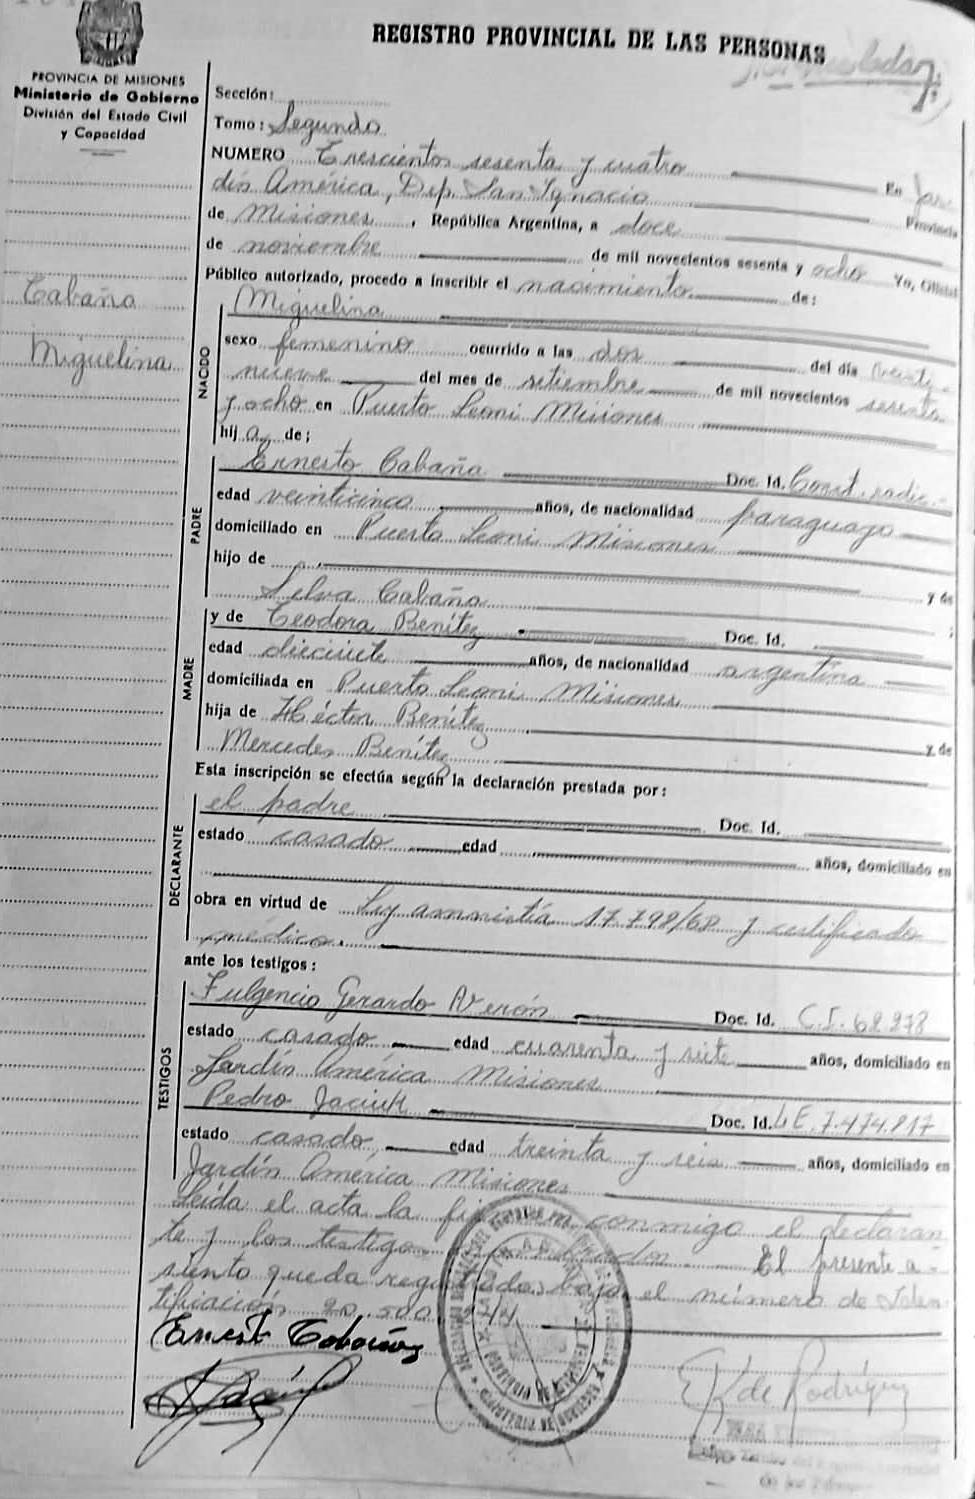 REGISTRO PROVINCIAL DE LAS PERSONAS
PROVINCIA DE MISIONES
Ministerio de Gobierno
División del Estado Civil
y Capacidad
Sección:
Tomo: Segundo
NUMERO Trescientos sesenta y cuatro En Jar
dín América, Dep. San Ignacio Provincia
de Misiones, República Argentina, a doce
de noviembre de mil novecientos sesenta y ocho Yo, Oficial
Público autorizado, procedo a inscribir el nacimiento de:
Cabaña
Miguelina
NACIDO
Miguelina
sexo femenino ocurrido a las dos del día veinti
nueve del mes de setiembre de mil novecientos sesenta
y ocho en Puerto Leoni Misiones
hija de;
PADRE
Ernesto Cabaña Doc. Id. Const. radic.
edad veinticinco años, de nacionalidad paraguayo
domiciliado en Puerto Leoni Misiones
hijo de y de
Selva Cabaña
MADRE
y de Teodora Benítez Doc. Id. ;
edad diecisiete años, de nacionalidad argentina
domiciliada en Puerto Leoni Misiones
hija de Héctor Benítez y de
Mercedes Benítez
Esta inscripción se efectúa según la declaración prestada por:
DECLARANTE
el padre Doc. Id.
estado casado edad años, domiciliado en
obra en virtud de Ley amnistía 17.798/68 y certificado
médico.
ante los testigos:
TESTIGOS
Fulgencio Gerardo Verón Doc. Id. C.I. 62.278
estado casado edad cuarenta y siete años, domiciliado en
Jardín América Misiones
Pedro Jaciuk Doc. Id. LE. 7.474.817
estado casado, edad treinta y seis años, domiciliado en
Jardín América Misiones
Leída el acta la conmigo el declaran
te y los testigos El presente a-
siento queda registrado bajo el número de Iden
tificación 20.500.244
Ernesto Cabaña
E K de Rodríguez